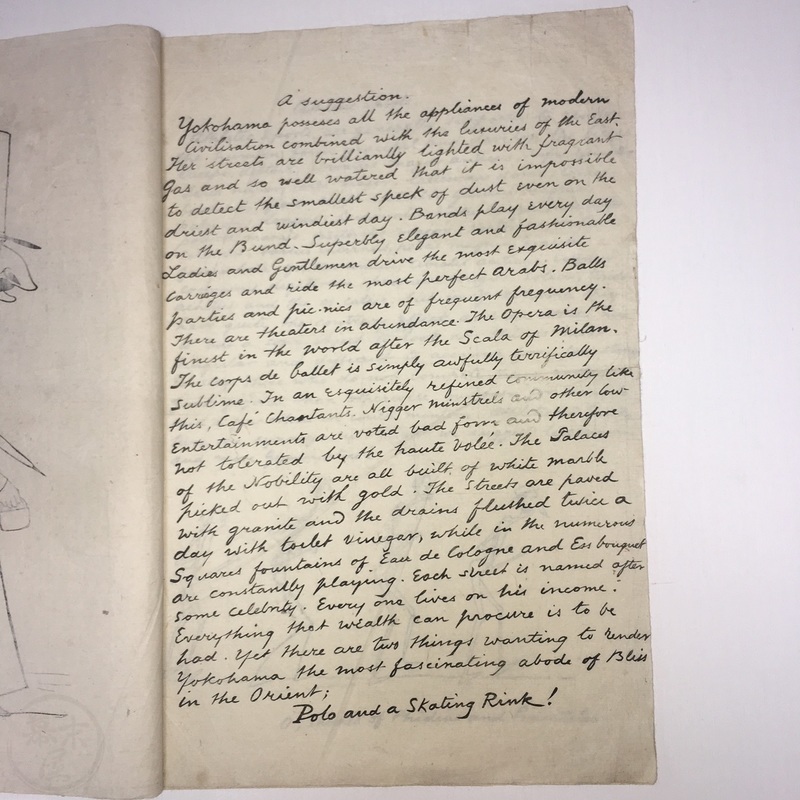 A suggestion.
Yokohama posseses all the appliances of modern
Civilisation combined with the luxuries of the East.
Her streets are brilliantly lighted with fragrant
Gas and so well watered that it is impossible
to detect the smallest speck of dust even on the
driest and windiest day. Bands play every day
on the Bund. Superbly Elegant and fashionable
Ladies and Gentlemen drive the most Exquisite
Carréges and ride the most perfect Arabs. Balls
parties and pic-nics are of frequent frequency.
There are theaters in abundance. The Opera is the
finest in the world after the Scala of Milan.
The corps de ballet is simply awfully terrifically
Sublime. In an Esquisitely refined Community like
this, Café Chantants. Nigger Minstrels and other low
Entertainments are voted bad form and therefore
not tolerated by the haute volée. The Palaces
of the Nobility are all built of white marble
picked out with gold. The Streets are paved
with granite and the drains flushed twice a
day with toilet Vinegar, while in the numerous
Squares fountains of Eau de Cologne and Ess bouquet
are constantly playing. Each street is named after
some Celebrity. Every one lives on his income.
Everything that wealth can procure is to be
had. Yet there are two things wanting to render
Yokohama the most fascinating abode of Bliss
in the Orient;
Polo and a Skating Rink!